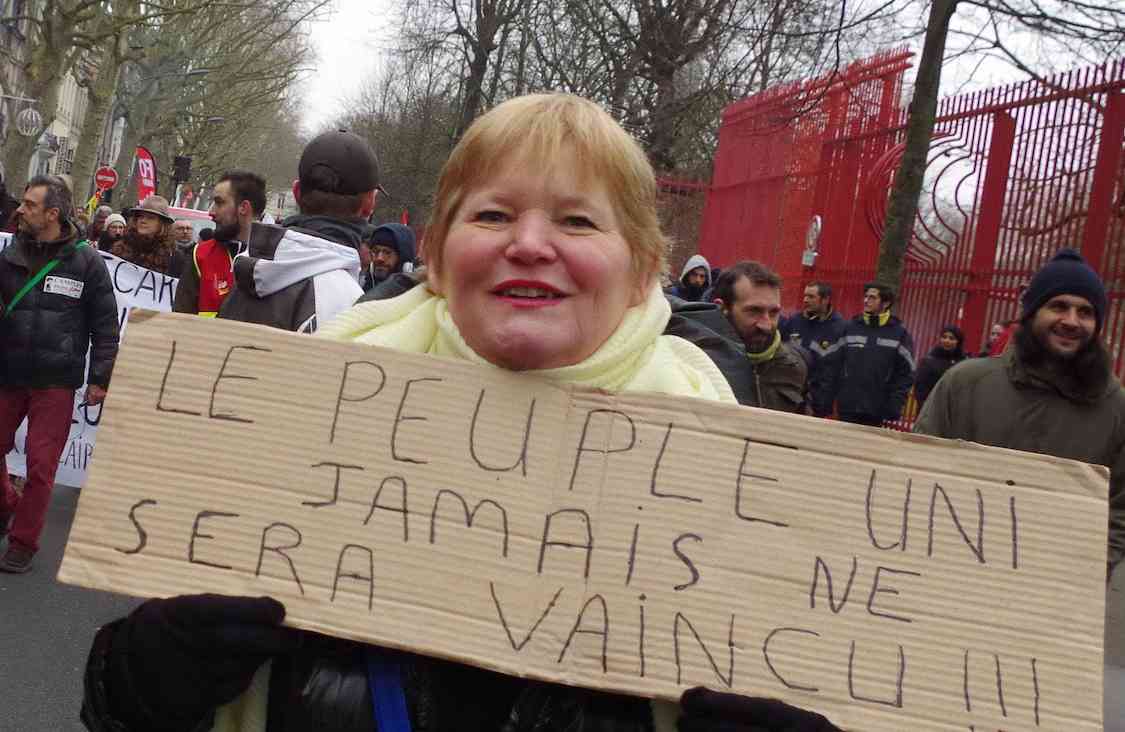 LE PEUPLE UNI
JAMAIS NE
SERA VAINCU !!!
FO